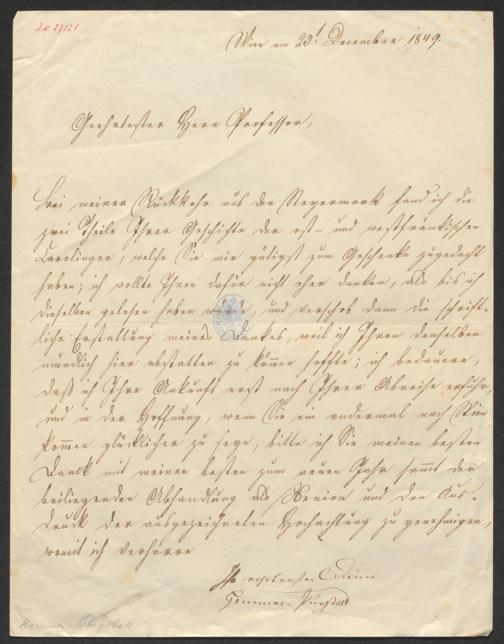 I.N. 27121
Wien am 23t December 1849.
Geehrtester Herr Professor,
Bei meiner Rückkehr aus der Steyermark fand ich die
zwei Theile Ihrer Geschichte der ost- und westfränkischen
Carolinger, welche Sie mir gütigst zum Geschenke zugedacht
haben; ich wollte Ihnen dafür nicht eher danken, als bis ich
dieselben gelesen haben würde, und verschob dann die schrift-
liche Erstattung meines Dankes, weil ich Ihnen denselben
mündlich hier abstatten zu können hoffte; ich bedauere,
daß ich Ihre Ankunft erst nach Ihrer Abreise erfuhr,
und in der Hoffnung, wenn Sie ein andermal nach Wien
kommen glücklicher zu seyn, bitte ich Sie meinen besten
Dank mit meinen besten zum neuen Jahr sammt der
beiliegenden Abhandlung als Xenion und den Aus-
druck der ausgezeichneten Hochachtung zu genehmigen,
womit ich verharre
Hammer-Purgstall
Hammer-Purgstall